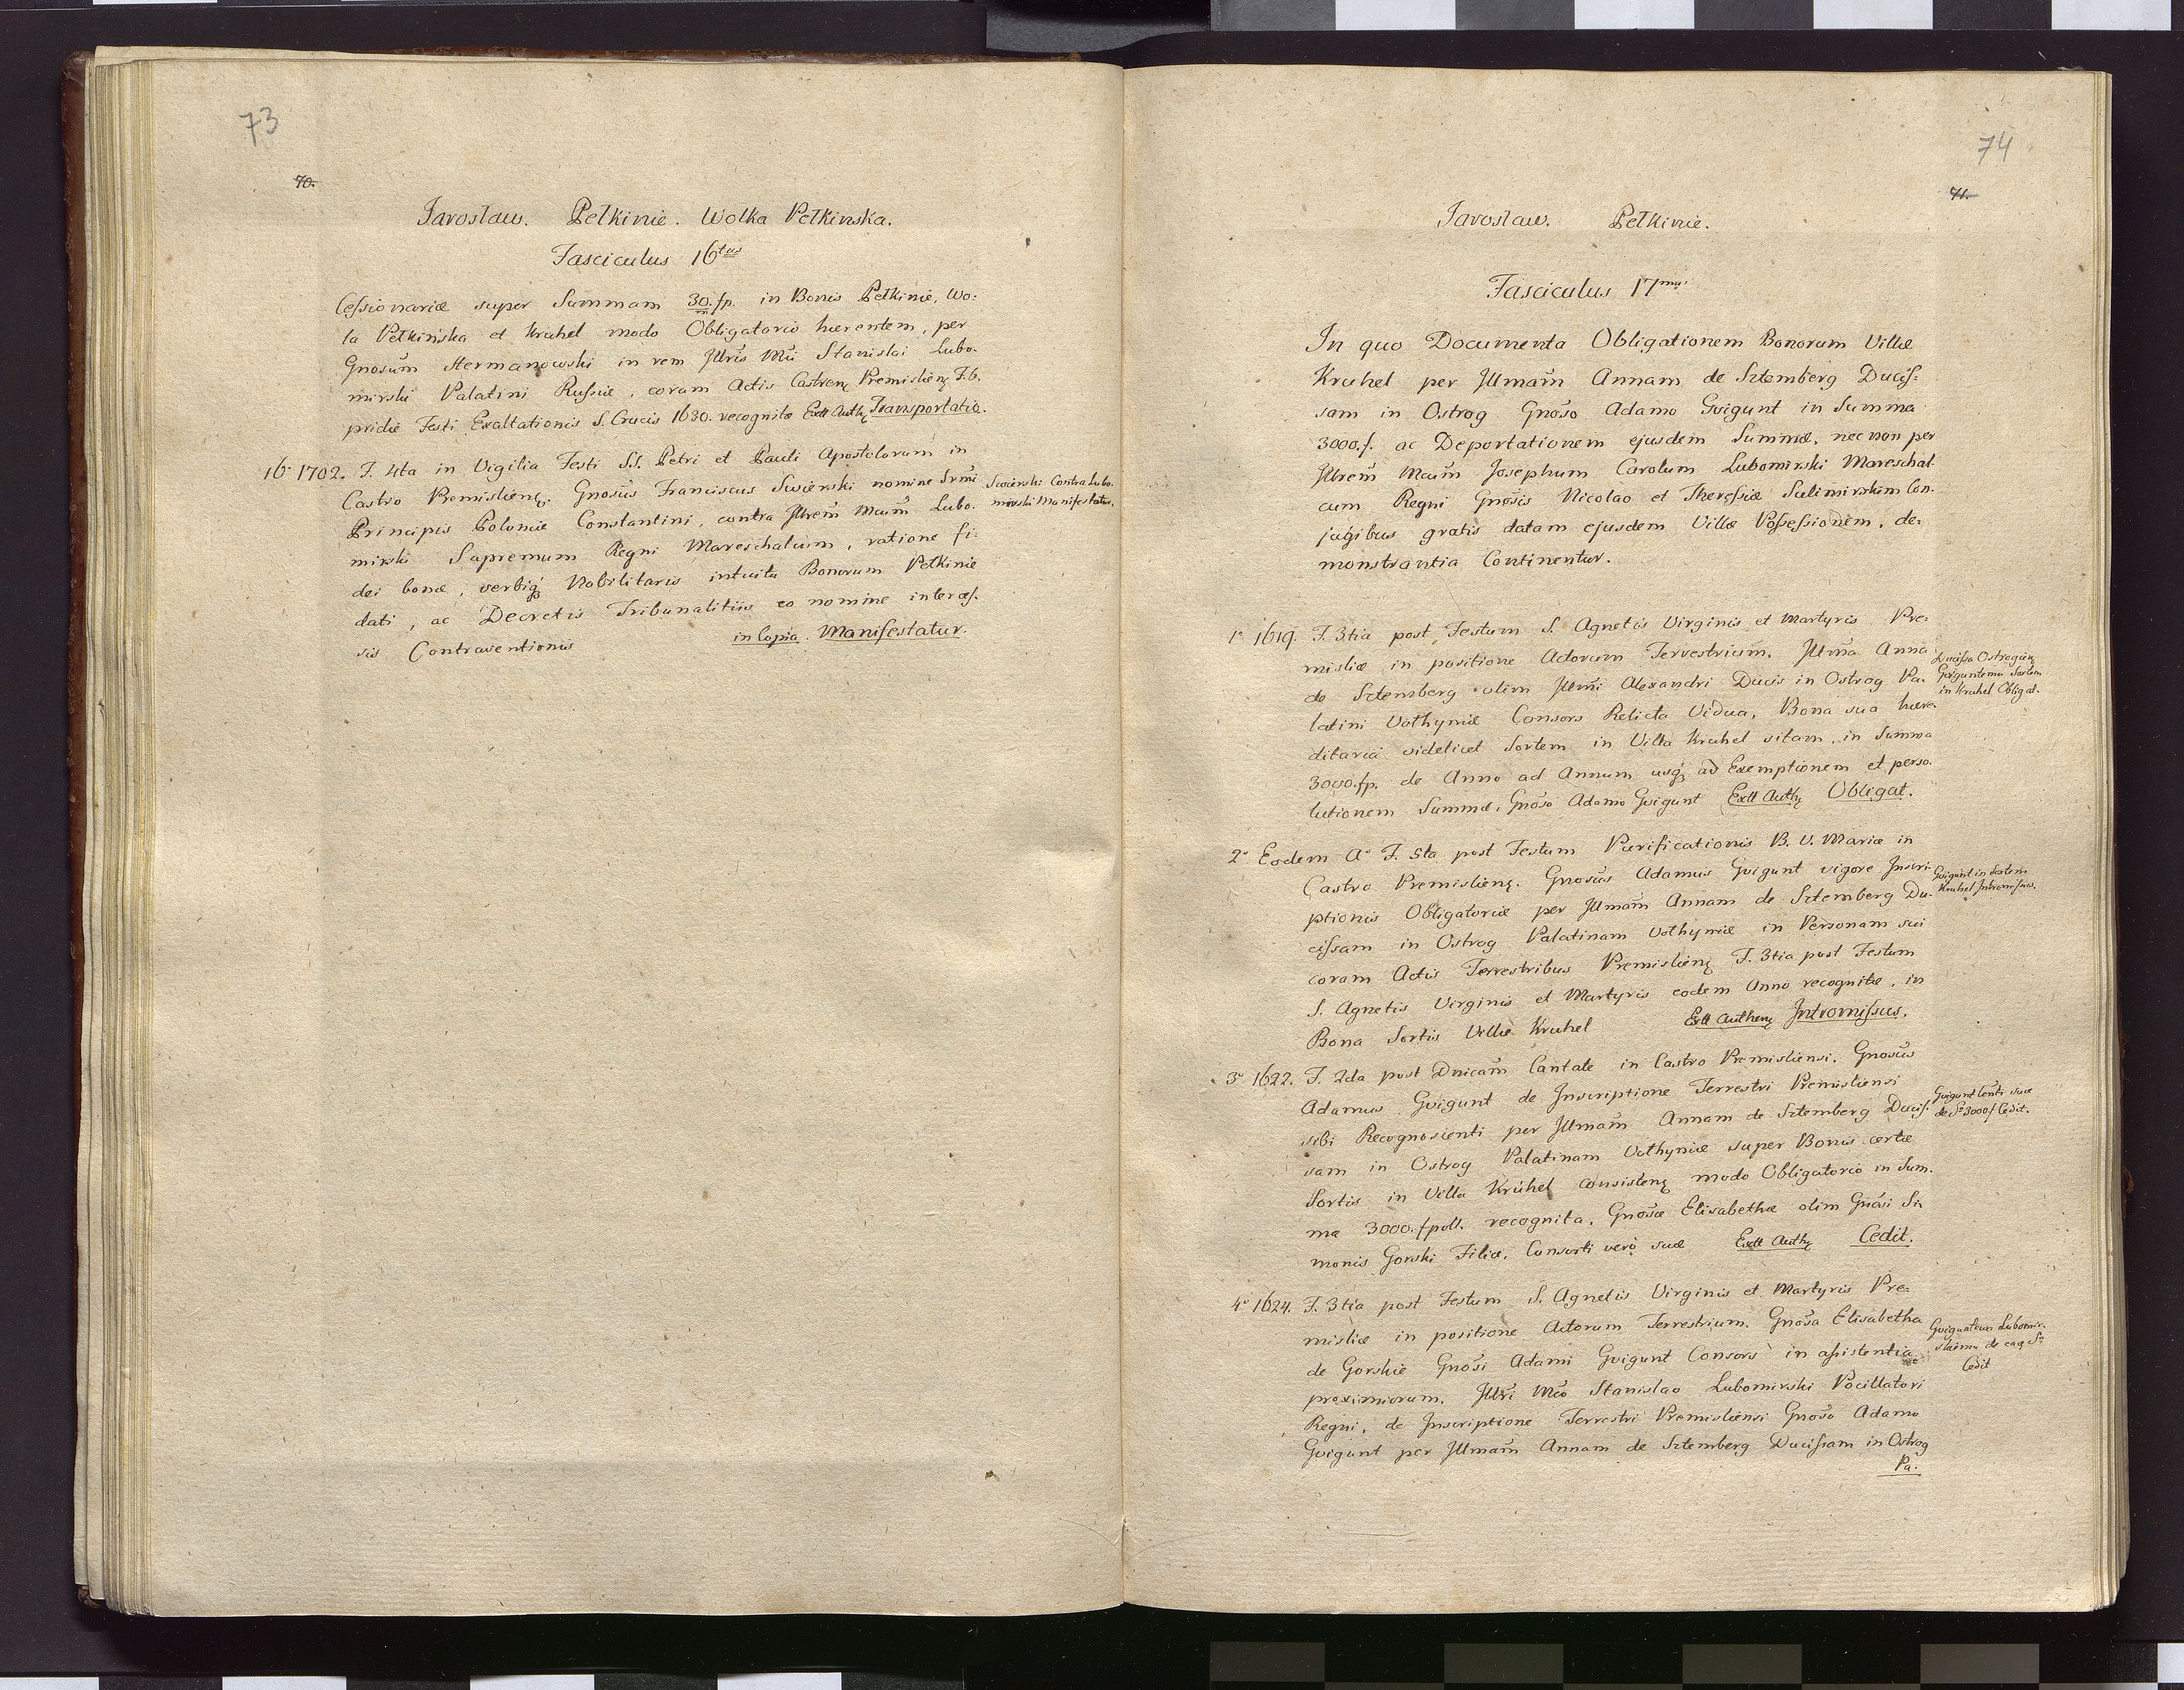 73
70.
Jarosław. Pełkinie. Wolka Pełkinska.
Fasciculus 16tus
Cessionariæ super Summam 30./m fp. in Bonis Pełkinie, Wo:
la Pełkińska et Kruhel modo Obligatorio hærentem, per
Gnosum Hermanowski in rem Jllris Mci Stanislai Lubo-
mirski Palatini Russiæ, coram Actis Castren. Premislien. F. 6.
pridie Festi Exaltationis S. Crucis 1630. recognitæ Extt Auth. Transportatio.
16. 1702. F. 4ta in Vigilia Festi S.S. Petri et Pauli Apostolorum in
Castro Premislien. Gnosus Franciscus Swierski nomine Srmi
Swierski Contra Lubo-
mirski Manifestatur.
Principis Poloniæ Constantini, contra Jllrem Mcum Lubo-
mirski Supremum Regni Mareschalum, ratione fi-
dei bonæ, verbiq. Nobilitaris intuitu Bonorum Pełkinie
dati, ac Decretis Tribunalitiis eo nomine interces-
sis Contraventionis in Copia. Manifestatur.
74
71.
Jarosław. Pełkinie.
Fasciculus 17mus
In quo Documenta Obligationem Bonorum Villæ
Kruhel per Jllmam Annam de Sztemberg Ducis-
sam in Ostrog Gnoso Adamo Gvigunt in Summa
3000.f. ac Deportationem ejusdem Summæ, nec non per
Jllrem Mcum Josephum Carolum Lubomirski Mareschal-
cum Regni Gnosis Nicolao et Theressiæ Sulimirskim Con-
jugibus gratis datam ejusdem Villæ Possessionem, de-
monstrantia Continentur.
1o 1619. F. 3tia post Festum S. Agnetis Virginis et Martyris Pre-
misliæ in positione Actorum Terrestrium. Jllma Anna
Ducissa Ostrogien.
Gviguntemu Sortem
in Kruhel Obligat.
de Sztemberg olim Jllmi Alexandri Ducis in Ostrog Pa-
latini Vołhyniæ Consors Relicta Vidua, Bona sua hære-
ditaria videlicet Sortem in Villa Kruhel sitam, in Summa
3000.fp. de Anno ad Annum usq. ad Exemptionem et perso-
lutionem Summæ, Gnoso Adamo Gvigunt Extt Auth. Obligat.
2o Eodem Ao F. 5ta post Festum Purificationis B. V. Mariæ in
Castro Premislien. Gnosus Adamus Gvigunt vigore Inscri-
Gvigunt in Sortem
Kruhel Intromissus.
ptionis Obligatoriæ per Jllmam Annam de Sztemberg Du-
cissam in Ostrog Palatinam Vołhyniæ in Personam sui
coram Actis Terrestribus Premislien. F. 3tia post Festum
S. Agnetis Virginis et Martyris eodem Anno recognitæ, in
Bona Sortis Villæ Kruhel Extt Authen. Intromissus.
3o 1622. F. 2da post Dnicam Cantate in Castro Premisliensi. Gnosus
Adamus Gvigunt de Inscriptione Terrestri Premisliensi
Gvigunt Consti suæ
de Sa 3000 f Cedit.
sibi Recognoscenti per Jllmam Annam de Sztemberg Ducis-
sam in Ostrog Palatinam Vołhyniæ super Bonis certæ
Sortis in Villa Kruhel consisten. modo Obligatorio in Sum-
ma 3000. fpoll. recognita, Gnosæ Elisabethæ olim Gnosi Si-
monis Gorski Filiæ, Consorti vero suæ Extt Auth. Cedit.
4o 1624. F. 3tia post Festum S. Agnetis Virginis et Martyris Pre-
misliæ in positione Actorum Terrestrium. Gnosa Elisabetha
Gviguntowa Lubomir-
skiemu de eaq. Sa
Cedit
de Gorskie Gnosi Adami Gvigunt Consors in assistentia
proximiorum, Jllri Mco Stanislao Lubomirski Pocillatori
Regni, de Inscriptione Terrestri Premisliensi Gnoso Adamo
Gvigunt per Jllmam Annam de Sztemberg Ducissam in Ostrog
Pa-